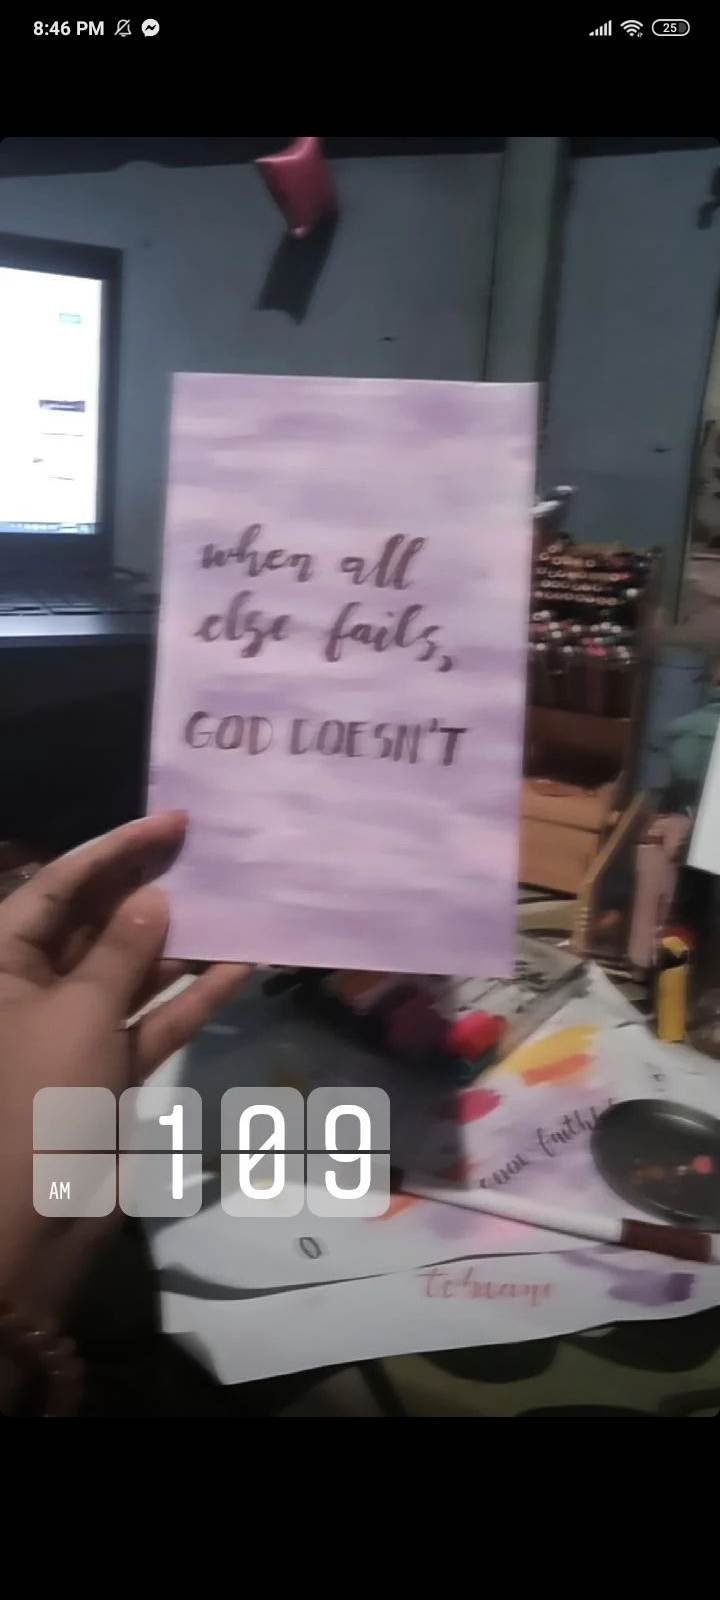 8:46 PM
25
when all
else fails,
GOD DOESN'T
AM 1 09